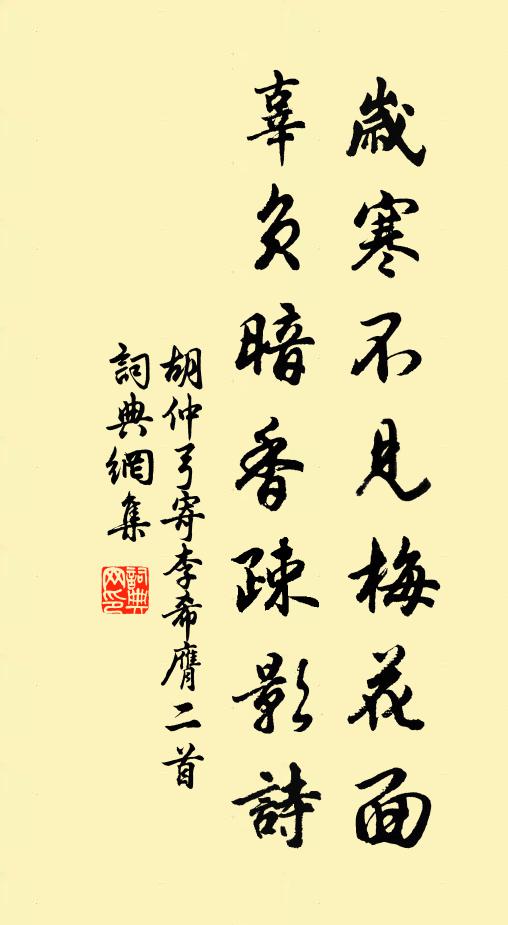 歲寒不見梅花面
辜負暗香疎影詩
胡仲弓寄李希膺二首
詞典網集
詞典網印